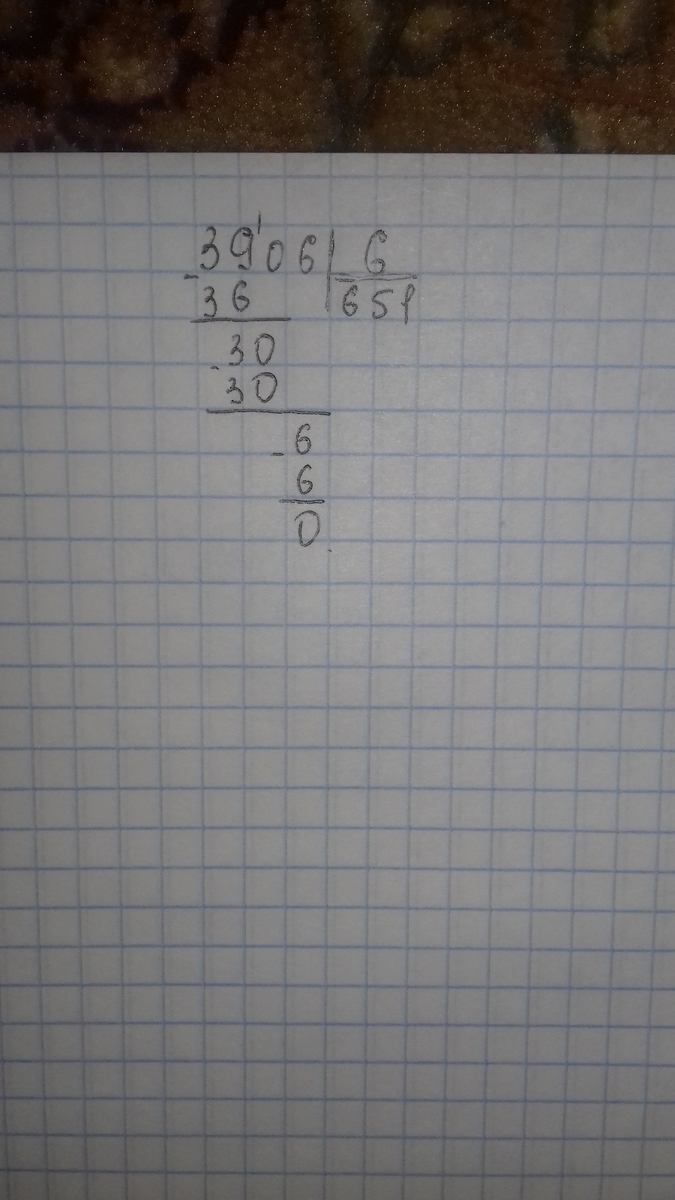 39'06 | 6
- 36 | 651
- 30
30
- 6
6
0